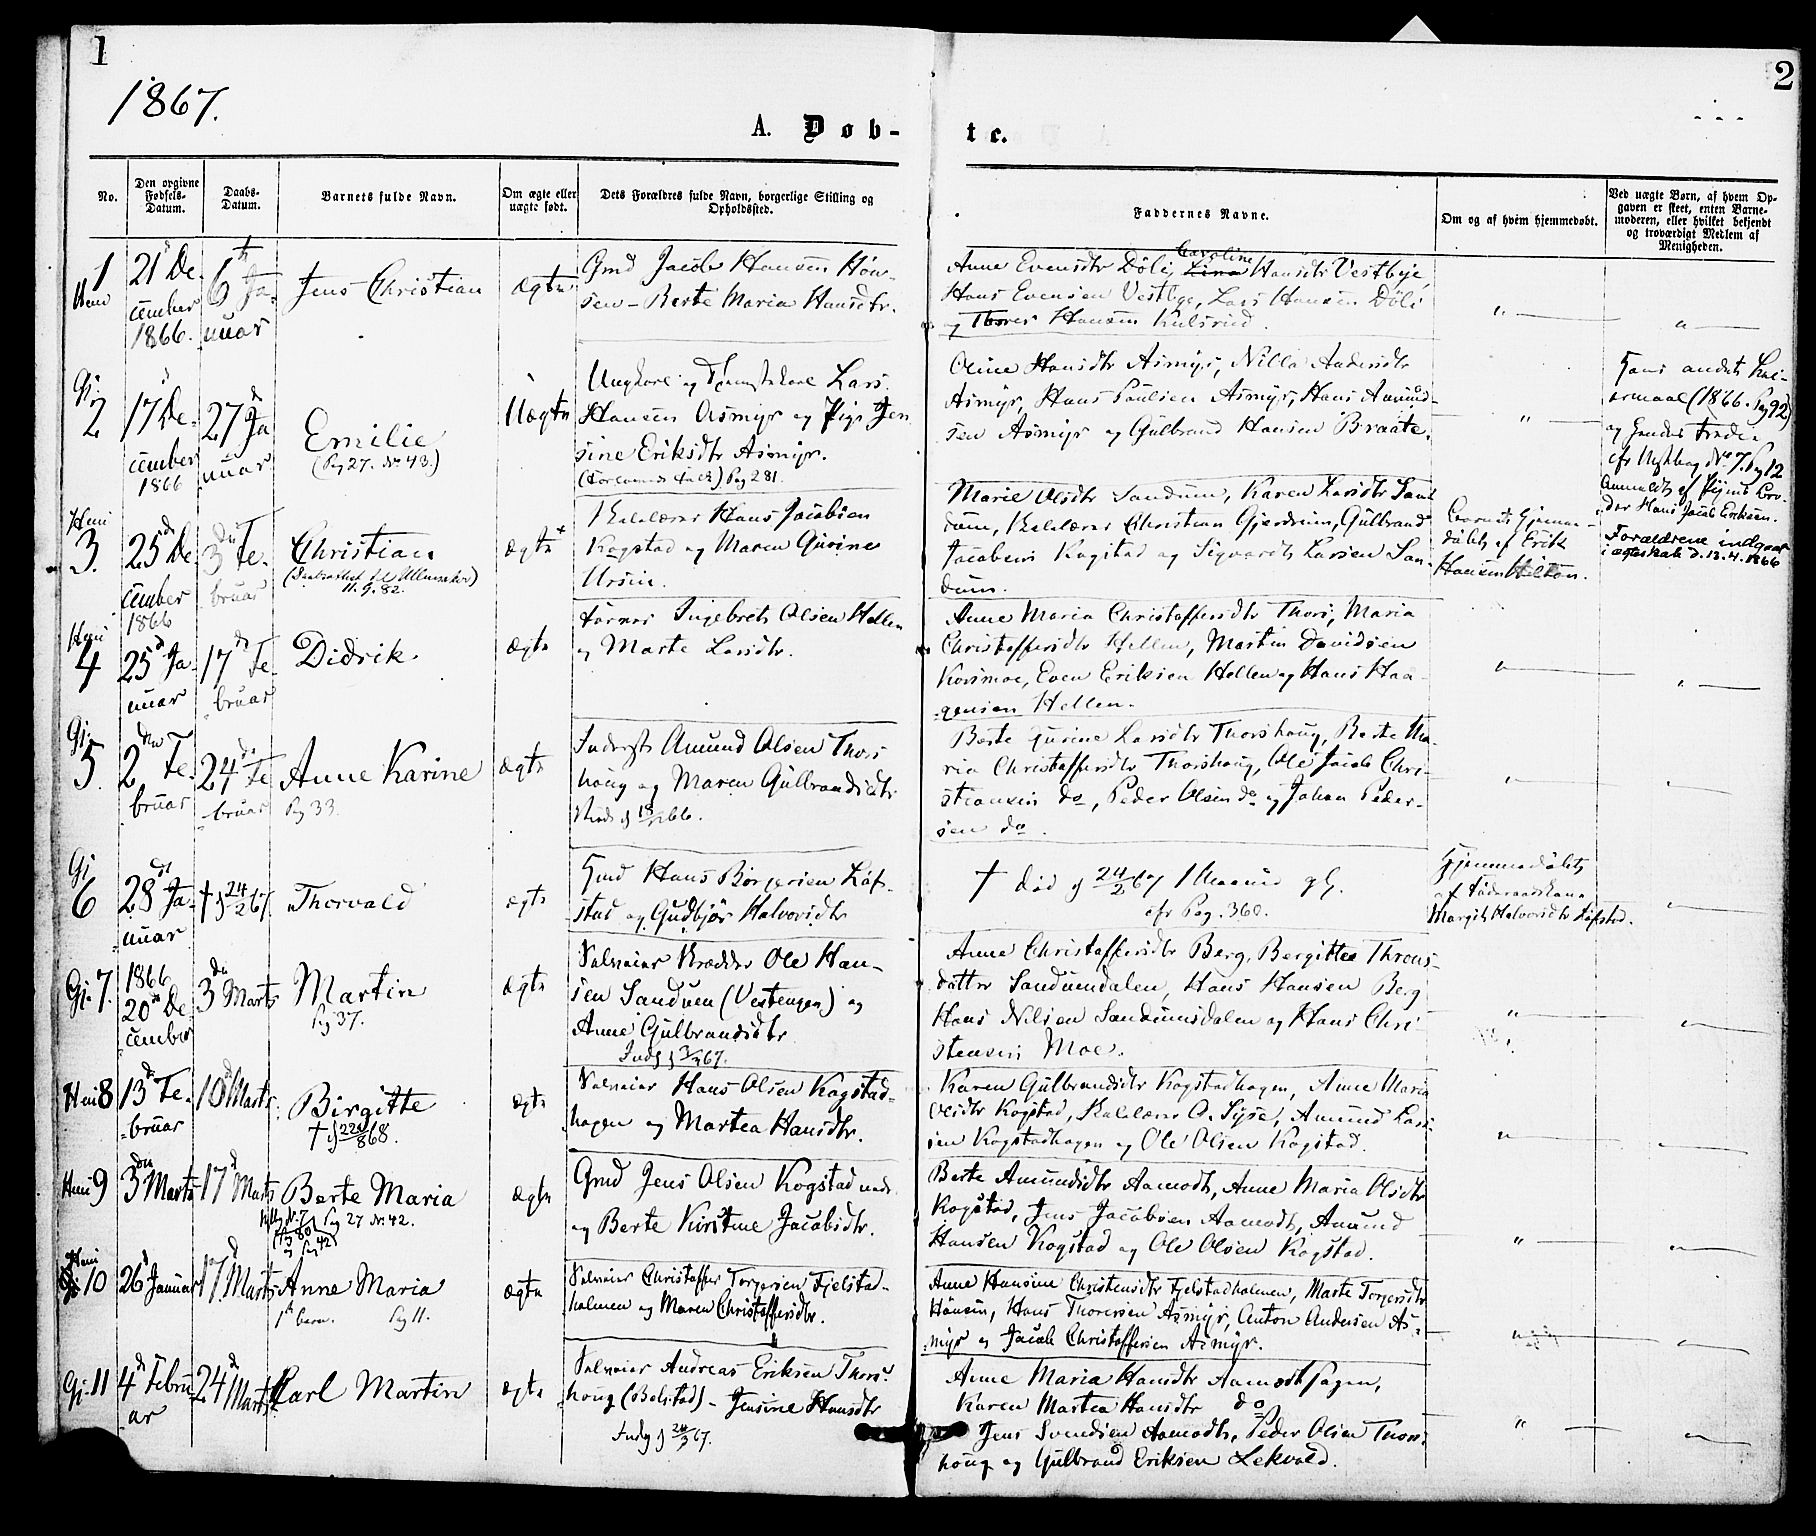 1
2
1867.
A. Døb-
te.
No.
Den opgivne Fødsels-Datum.
Daabs-Datum.
Barnets fulde Navn.
Om ægte eller uægte født.
Dets Forældres fulde Navn, borgerlige Stilling og Opholdssted.
Faddernes Navne.
Om og af hvem hjemmedøbt.
Ved uægte Børn, af hvem Opgaven er skeet, enten Barnemoderen, eller hvilket bekjendt og troværdigt Medlem af Menigheden.
1
21 De-
cember
1866.
6 Ja-
nuar
Jens Christian
ægte
Gmd Jacob Hansen
sen - Berte Maria Hansdtr.
Anne Evensdtr Döli, Caroline Hansdtr Vestbye,
Hans Evensen Vestbye, Lars Hansen Döli
og Thorer Hansen Kulsrud.
Gj.
2
17 De-
cember
1866
27 Ja
nuar
Emilie
(Pag 27. No 43.)
Uægte
Ungkarl og Lars
Hansen Asmyr og Pige Jen
sine Eriksdtr Asmyr.
Pag 281.
Oline Hansdtr Asmyr, Nilla Andersdtr
Asmyr, Hans Paulsen Asmyr, Hans Amund-
sen Asmyr og Gulbrand Hansen Braate.
Hans andet Lei-
ermaal (1866. Pag 92)
og Hendes tredie
cfr No 7. Pag 12
Anmeldt af Pigens Bro-
der Hans Jacob Eriksen.
Forældrene indgaar
i ægteskab d. 13.4.1866
3.
25 De-
cember
1866
3 Fe-
bruar
Christian
(Daabsattest til Ullensaker)
11.9.82.
ægte
Hans Jacobsen
Kogstad og Maren Gurine
Ursin.
Marie Olsdtr Sandum, Karen Larsdtr San
dum, Christian Gjerdrum, Gulbrand
Jacobsen Kogstad og Sigvardt Larsen San-
dum.
Hjemme-
døbt af Erik
Hansen Hilton.
4
25 Ja-
nuar
17 Fe-
bruar
Didrik
ægte
Ingebret Olsen Hellen
og Marte Larsdtr.
Anne Maria Christoffersdtr Thors, Maria
Christoffersdtr Hellen, Martin Davidsen
Korsmoe, Even Eriksen Hellen og Hans Haa-
gensen Hellen.
Gj.
5
2 Fe-
bruar
24 Fe
bruar
Anne Karine
Pag 33.
ægte
Inderst Amund Olsen Thors
houg og Maren Gulbrandsdtr
Berte Gurine Larsdtr Thorshoug, Berte Ma-
ria Christoffersdtr Thorshoug, Ole Jacob Chri-
stiansen do, Peder Olsen do og Johan Peder-
sen do.
Gj
6
28 Ja-
nuar
† 24/2 67.
Thorvald
ægte
Gmd Hans Børgersen Løf-
stad og Gudbjør Halvorsdtr
† død 24/2 67
cfr Pag. 360.
Hjemmedøbt
af
Margit Halvorsdtr Løfstad.
Gj.
7.
1866
20 De
cember
3 Marts
Martin
Pag 37.
ægte
Selveier Ole Han-
sen Sanduen (Vestengen) og
Anne Gulbrandsdtr
Anne Christoffersdtr Berg, Bergitte Throns-
datter Sandumdalen, Hans Hansen Berg
Hans Nilsen Sandumsdalen og Hans Chri-
stensen Moe.
8
13 Fe-
bruar
10 Marts
Birgitte
ægte
Selveier Hans Olsen Kogstad-
hagen og Martea Hansdtr.
Karen Gulbrandsdtr Kogstadhagen, Anne Maria
Olsdtr Kogstad, O. Syse, Amund Lar-
sen Kogstadhagen og Ole Olsen Kogstad.
9
3 Marts
17 Marts
Berte Maria
Pag 27 No 42.
ægte
Gmd Jens Olsen Kogstad
og Berte Kirstine Jacobsdtr.
Berte Amundsdtr Aamodt, Anne Maria Olsdtr
Kogstad, Jens Jacobsen Aamodt, Amund
Hansen Kogstad og Ole Olsen Kogstad.
10
26 Januar
17 Marts
Anne Maria
Pag 11.
ægte
Selveier Christoffer Torgersen Fjelstad-
holmen og Maren Christoffersdtr.
Anne Hansine Christensdtr Fjelstadholmen, Marte Torgersdtr
Hansen, Hans Thorersen Asmyr, Anton Andersen As-
myr og Jacob Christoffersen Asmyr.
Gj.
11
4 Febru-
ar
24 Marts
Carl Martin
ægte
Selveier Andreas Eriksen Thors-
houg (Bolstad) - Jensine Hansdtr
Anne Maria Hansdtr Aamodthagen,
Karen Martea Hansdtr do
Jens Svendsen Aamodt, Peder Olsen Thors-
houg og Gulbrand Eriksen Lekvold.